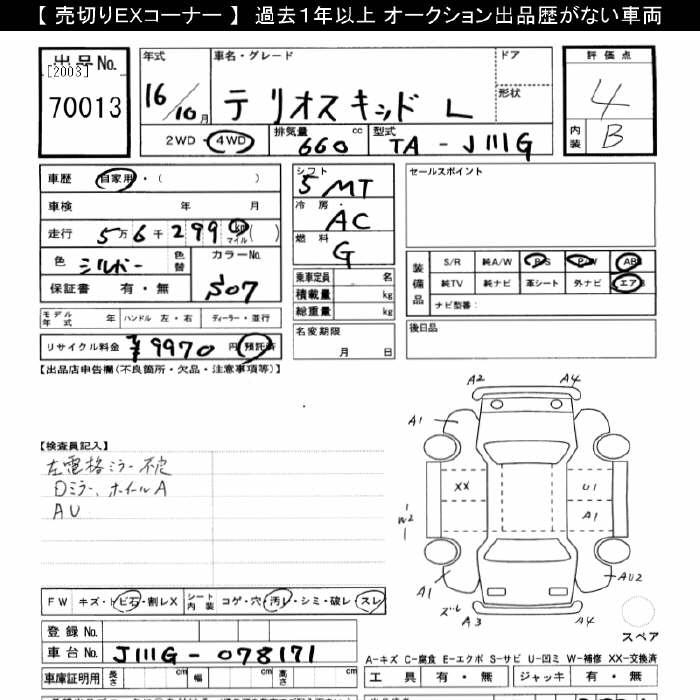 【 売切りEXコーナー 】 過去1年以上 オークション出品歴がない車両
出品No.
[2003]
70013
年式
16/10月
車名・グレード
テリオスキッド L
ドア
形状
2WD・4WD
排気量 660 cc
型式 TA-J111G
評価点
4
内装 B
車歴 自家用・( )
車検 年 月
走行 5万6千299 km マイル( )
色 シルバー
色替
カラーNo. S07
保証書 有・無
シフト 5MT
冷房・ AC
燃料 G
乗車定員 名
積載量 kg
総重量 kg
名変期限
月 日
セールスポイント
装備品
S/R 純A/W P/S P/W AB
純TV 純ナビ 革シート 外ナビ エアB
ナビ型番:
後日品
モデル年式 年 ハンドル 左・右 ディーラー・並行
リサイクル料金 ¥9970 円 預託済
【出品店申告欄(不良箇所・欠品・注意事項等)】
【検査員記入】
左電格ミラー不定
Dミラー、ホイールA
AU
A2 A4
A1
XX U1
A1
W2
A1 AU2
ズレ
A3 A4
スペア
FW キズ・トビ石・割レX
シート内装 コゲ・穴・汚レ・シミ・破レ・スレ
登録No.
車台No. J111G-078171
車庫証明用 長さ cm 幅 cm 高さ cm
A-キズ C-腐食 E-エクボ S-サビ U-凹ミ W-補修 XX-交換済
工具 有・無 ジャッキ 有・無